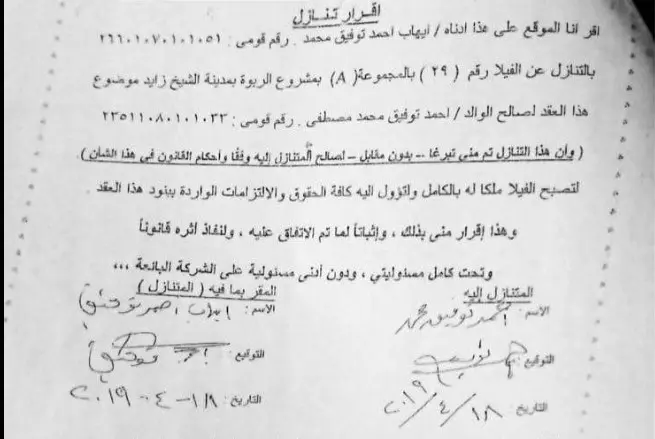 اقرار تنازل
اقر انا الموقع على هذا ادناه / ايهاب احمد توفيق محمد . رقم قومى : ٢٦٦٠١٠٧٠١٠١٠٥١
بالتنازل عن الفيلا رقم ( ٢٩ ) بالمجموعة( A ) بمشروع الربوة بمدينة الشيخ زايد موضوع
هذا العقد لصالح الوالد / احمد توفيق محمد مصطفى . رقم قومى : ٢٣٥١١٠٨٠١٠١٠٣٣
( وأن هذا التنازل تم منى تبرعا -- بدون مقابل – لصالح المتنازل إليه وفقا وأحكام القانون فى هذا الشأن ) .
لتصبح الفيلا ملكا له بالكامل وتؤول اليه كافة الحقوق والالتزامات الواردة ببنود هذا العقد .
وهذا إقرار منى بذلك ، وإثباتاً لما تم الاتفاق عليه ، ولنفاذ أثره قانوناً
وتحت كامل مسئوليتي ، ودون أدنى مسئولية على الشركة البائعة ،،،
المتنازل إليه
المقر بما فيه ( المتنازل )
الاسم : احمد توفيق محمد
الاسم : ايهاب احمد توفيق
التوقيع :
التوقيع : توفيق
التاريخ : ١٨ / ٤ / ٢٠١٩
التاريخ : ١٨ - ٤ - ٢٠١٩